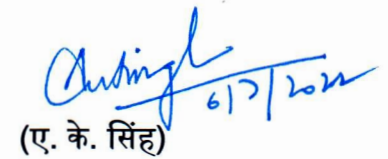 6/7/2022
(ए. के. सिंह)